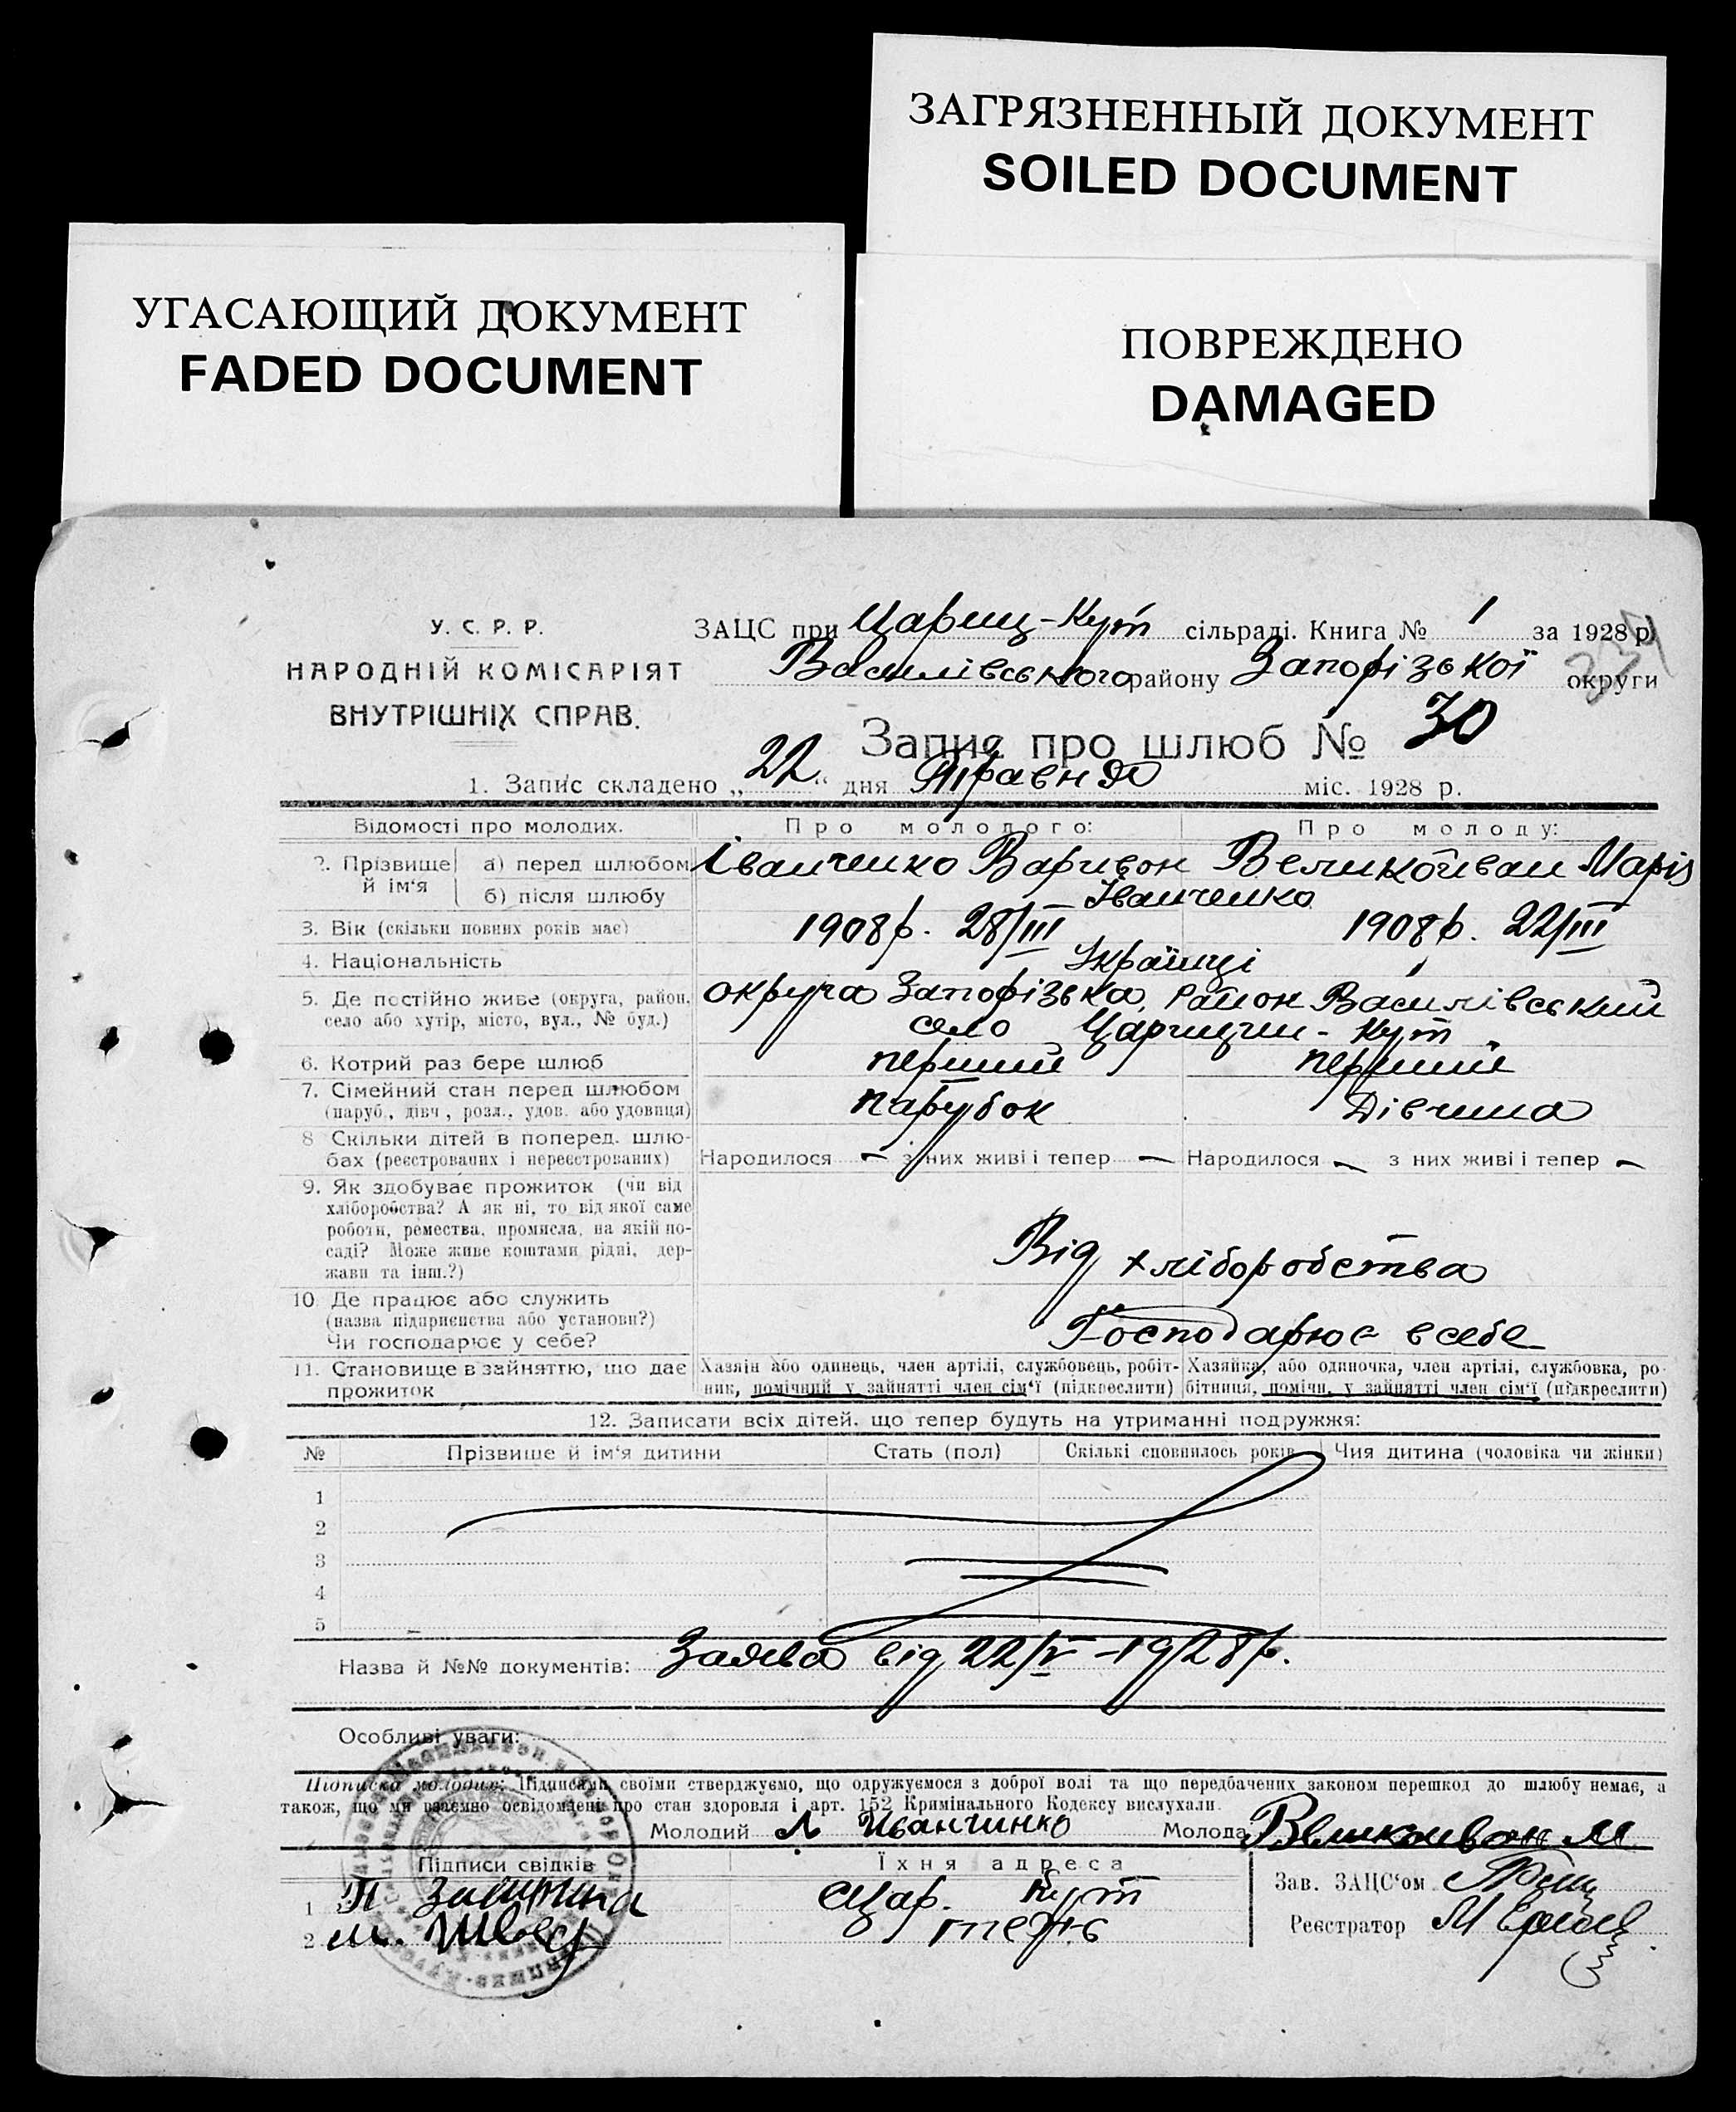 ЗАГРЯЗНЕННЫЙ ДОКУМЕНТ
SOILED DOCUMENT
УГАСАЮЩИЙ ДОКУМЕНТ
FADED DOCUMENT
ПОВРЕЖДЕНО
DAMAGED
У. С. Р. Р.
НАРОДНІЙ КОМІСАРІЯТ
ВНУТРІШНІХ СПРАВ.
ЗАЦС при Цариц-Кут сільраді. Книга № 1 за 1928 р.
Василівського району Запорізької округи
Запис про шлюб № 30
1. Запис складено „22“ дня Травня міс. 1928 р.
Відомості про молодих. Про молодого: Про молоду:
2. Прізвище й ім‘я а) перед шлюбом Іванченко Варивон Великоиван Марія
б) після шлюбу Іванченко
3. Вік (скільки повних років має) 1908р. 28/III 1908р. 22/III
4. Національність Українці
5. Де постійно живе (округа, район, округа Запорізька, район Василівський
село або хутір, місто, вул., № буд.) село Царицин-Кут
6. Котрий раз бере шлюб перший перший
7. Сімейний стан перед шлюбом
(паруб., дівч., розл., удов. або удовиця) парубок Дівчина
8 Скільки дітей в поперед. шлю-
бах (реєстрованих і нереєстрованих) Народилося — з них живі і тепер — Народилося — з них живі і тепер —
9. Як здобуває прожиток (чи від
хліборобства? А як ні, то від якої саме
роботи, ремества, промисла, на якій по-
саді? Може живе коштами рідні, дер-
жави та інш.?) Від хліборобства
10. Де працює або служить
(назва підприємства або установи?)
Чи господарює у себе? Господарює в себе
11. Становище в зайняттю, що дає Хазяін або одинець, член артілі, службовець, робіт- Хазяйка, або одиночка, член артілі, службовка, ро-
прожиток ник, помічний у зайнятті член сім‘ї (підкреслити) бітниця, помічн. у зайнятті член сім‘ї (підкреслити)
12. Записати всіх дітей, що тепер будуть на утриманні подружжя:
№ Прізвище й ім‘я дитини Стать (пол) Скількі сповнилось років Чия дитина (чоловіка чи жінки)
1
2
3
4
5
Назва й №№ документів: Заява від 22/V-1928р.
Особливі уваги:
Підписка молодих: Підписами своїми стверджуємо, що одружуємося з доброї волі та що передбачених законом перешкод до шлюбу немає, а
також, що ми взаємно освідомлені про стан здоровля і арт. 152 Кримінального Кодексу вислухали.
Молодий Иванчинко Молода Великиван М
Підписи свідків Їхня адреса Зав. ЗАЦС‘ом
1 П Цар. Кут Реєстратор М
2 М. Швец тежъ